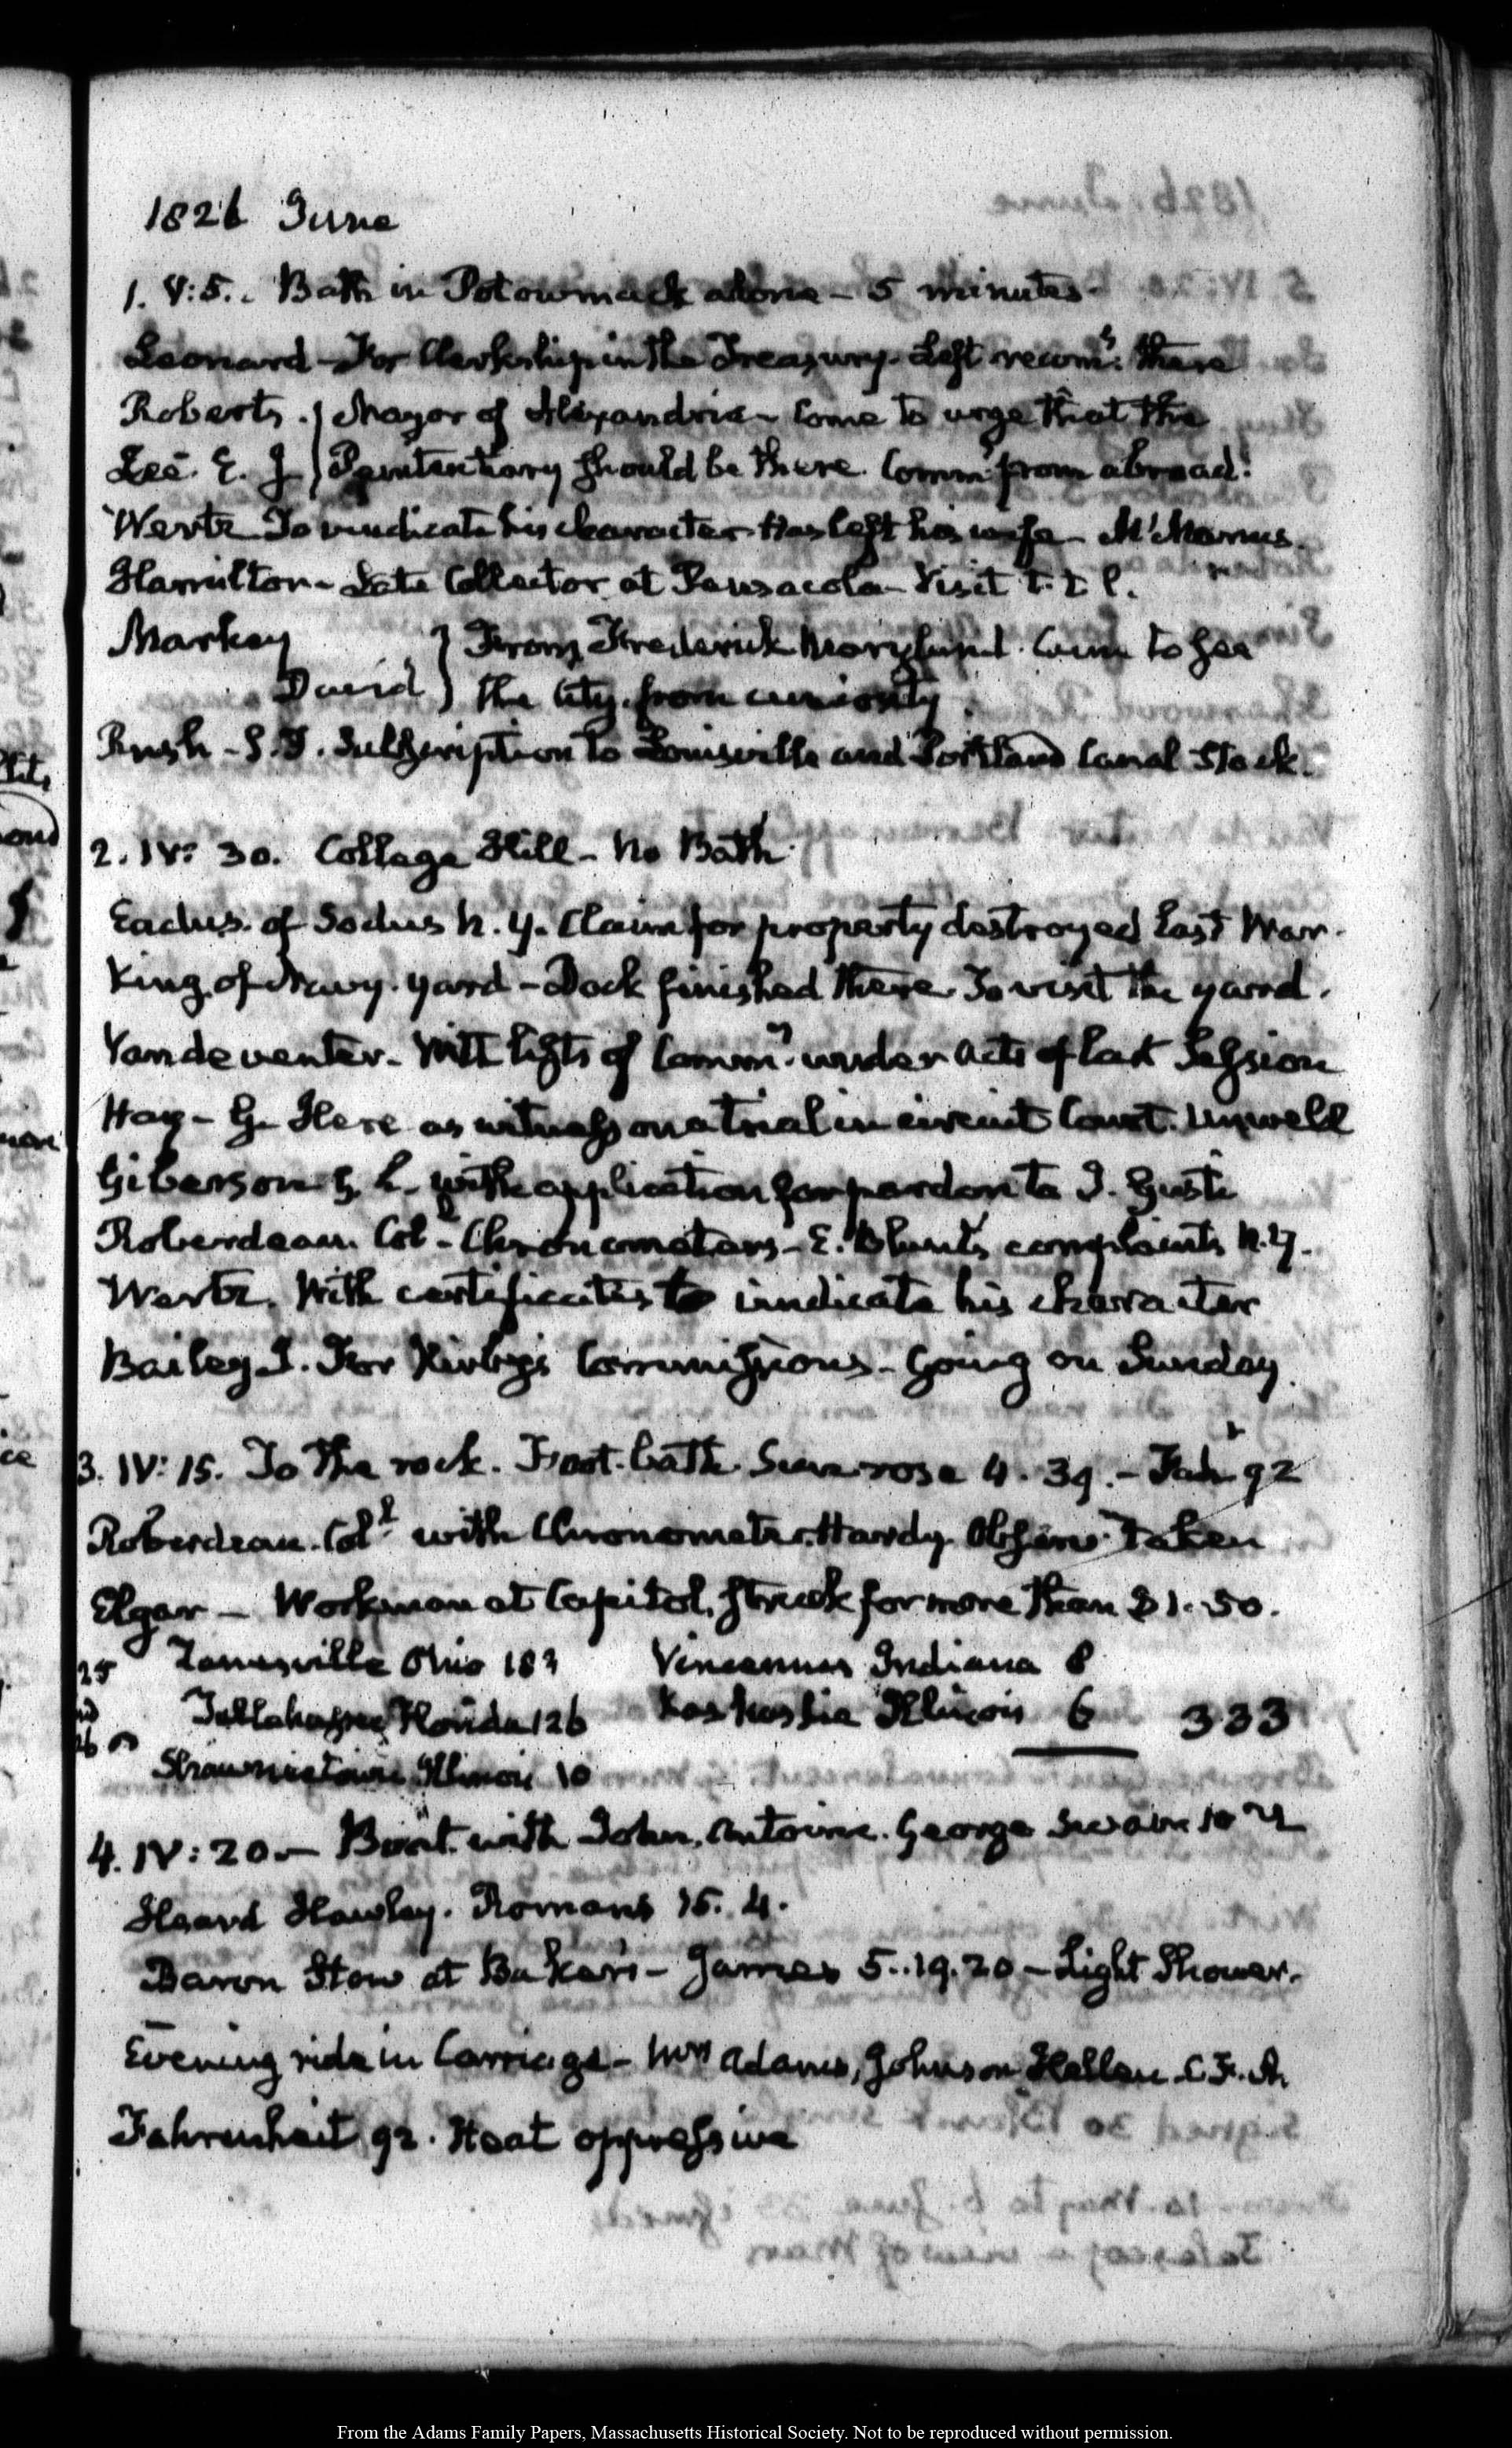 1826 June
1. V:5.. Bath in Potowmack alone – 5 minutes –
Leonard – For Clerkship in the Treasury. Left recomns. there
Roberts . } Mayor of Alexandria – Come to urge that the
Lee. E. J } Penitentiary should be there. Comm from abroad.
Wertz To vindicate his character. Has left his wife – McManus.
Hamilton – Late Collector at Pensacola – Visit t. t. l.
Markey } From Frederick Maryland. Come to see
David } the City, from curiosity
Rush – Subscription to Louisville and Portland Canal Stock.
2. IV: 30. College Hill – No Bath
Eadus. of Sodus N. Y. Claim for property destroyed last War.
King. of Navy. yard – Dock finished there. To visit the yard.
Vandeventer – With lists of Commns. under Acts of last Session
Hay – G. Here as witness on a trial in circuit Court. Unwell
Giberson G. L. with application for pardon to J.
Roberdeau. Coll. – Chronometers – E. Blunt's complaints N.Y.
Wertz. With certificates to vindicate his character
Bailey J. For Kirby's Commissions – Going on Sunday
3. IV: 15. To the rock. Foot-bath. Sun rose 4. 39. – Fahr 92
Roberdeau. Coll. with Chronometer Hardy. Observn. taken
Elgar – Workmen at Capitol, struck for more than $1.50.
25 Zanesville Ohio 183 Vincennes Indiana 8
Tallahassee Florida 126 Kaskaskia Illinois 6 333
Shawneetown Illinois 10
4. IV: 20 – Boat with John, Antoine. George Swam 10
Heard Hawley. Romans 15. 4.
Baron Stow at Baker's – James 5..19.20 – Light Shower.
Evening ride in Carriage – Mrs Adams, Johnson Hellen. C.F.A
Fahrenheit 92. Heat oppressive
From the Adams Family Papers, Massachusetts Historical Society. Not to be reproduced without permission.